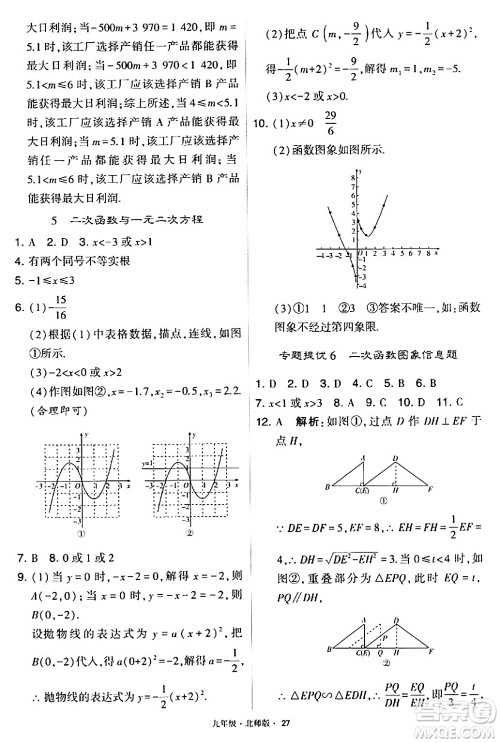 大日利润；当－500m＋3 970＝1 420，即 m＝
5.1 时，该工厂产销任一产品都能获得最
大日利润；当－500m＋3 970＜1 420，即
5.1＜m≤6 时，该工厂应该选择产销 B 产品
能获得最大日利润；综上所述，当 4≤m＜
5.1 时，该工厂应该选择产销 A 产品能获得
最大日利润；当 m＝5.1 时，该工厂产销任一
产品都能获得最大日利润；当 5.1＜m≤6
时，该工厂应该选择产销 B 产品能获得最
大日利润.
5 二次函数与一元二次方程
1. A 2. D 3. x＜－3 或 x＞1
4. 有两个同号不等实根
5. －1≤x≤3
6. (1)－15/16
(2)根据(1)中表格数据，描点，连线，如图
①所示.
(3)－2＜x＜0 或 x＞2
(4)作图如图②，x＝－2.5，－0.7，2.2.
(合理即可)
① ②
7. B 8. 0 或 1 或 2
9. (1)当 y＝0 时，－x－2＝0，解得 x＝－2，则
A(－2，0)，
当 x＝0 时，y＝－2，则 B(0，－2).
设抛物线的表达式为 y＝a(x＋2)²，把
B(0，－2)代人，得－2＝a(0＋2)²，解得
a＝－1/2，
∴ 抛物线的表达式为 y＝－1/2(x＋2)².
(2)把点 C(m，－9/2)代人 y＝－1/2(x＋2)²，
(3)x＜－2 或 x＞0
10. (1)x≠0 29/6
(2)函数图象如图所示.
(3)①1 1 ②3 ③答案不唯一，如：函数
图象不经过第四象限.
专题提优 6 二次函数图象信息题
7. x＜1 或 x＞3 8. B 9. C 10. B 11. A
12. A 解析：如图①，过点 D 作 DH⊥EF 于
点 H，
B A C(E) D H F
①
∵ DE＝DF＝5，EF＝8，∴ EH＝FH＝1/2EF＝
4，∴ DH＝√(DE²－EH²)＝3，当 0≤t＜4 时，如
图②，重叠部分为△EPQ，此时 EQ＝t，
PQ∥DH，
②
∴ △EPQ∽△EDH，∴ PQ/DH＝EQ/EH，即 PQ/3＝t/4，
九年级·北师版·27